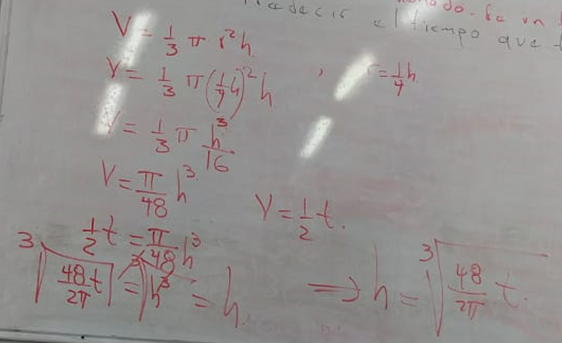 el tiempo que
V = 1/3 π r²h
V = 1/3 π (1/4 h)² h , r = 1/4 h
V = 1/3 π h³/16
V = π/48 h³
V = 1/2 t.
1/2 t = π/48 h³
∛(48t/2π) = ∛h³ = h. ⟹ h = ∛(48/2π t.)